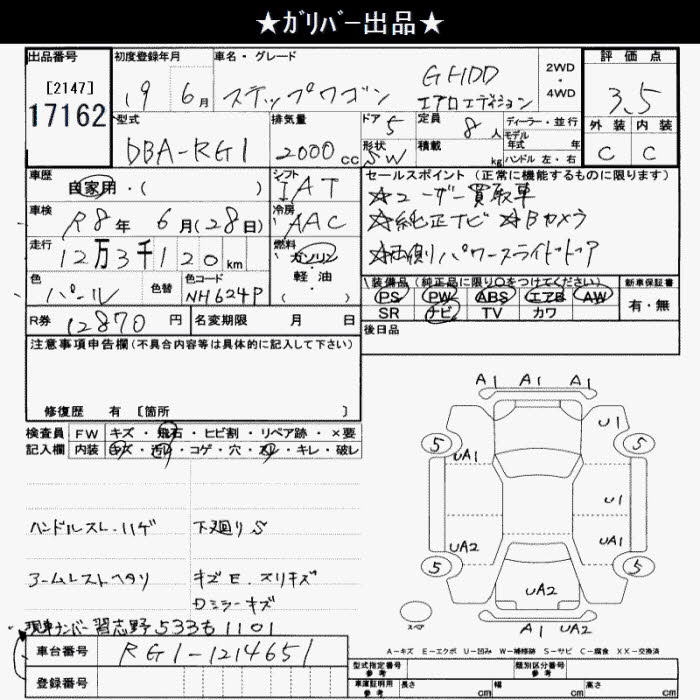 ★ガリバー出品★
出品番号 初度登録年月 車名・グレード 評価点
[2147]
17162
19 6月 ステップワゴン G HDD エアロエディション 2WD・4WD 3.5
型式 排気量 ドア 定員 ディーラー・並行 外装 内装
DBA-RG1 2000cc 5 8人 モデル年式 年 C C
形状 積載 ハンドル 左・右
SW kg
車歴 シフト セールスポイント (正常に機能するものに限ります)
自家用・( ) IAT ☆ユーザー買取車
車検 冷房 ☆純正ナビ ☆Bカメラ
R8年 6月(28日) AAC ☆両側パワースライドドア
走行 燃料
12万3千120km ガソリン・軽油
色 色替 色コード ( ) 装備品 (純正品に限り○をつけてください) 新車保証書
パール NH624P PS PW ABS エアB AW 有・無
SR ナビ TV カワ
R券 12870円 名変期限 月 日 後日品
注意事項申告欄(不具合内容等は具体的に記入して下さい)
修復歴 有 [箇所 ]
検査員 FW キズ・飛石・ヒビ割・リペア跡・×要
記入欄 内装 キズ・汚れ・コゲ・穴・スレ・キレ・破レ
ハンドルスレ・ハゲ 下廻りS
アームレストヘタリ キズE.スリキズ
Dミラーキズ
現車ナンバー 習志野533も1101
車台番号 RG1-1214651
登録番号
A1 A1 A1
U1
5 5
UA1
U1
UA2 UA1
5 5
UA2
スペア
A1 UA2
A-キズ E-エクボ U-凹み W-補修跡 S-サビ C-腐食 XX-交換済
型式指定番号 参考 類別区分番号 参考
車庫証明用 参考 長さ cm 幅 cm 高さ cm